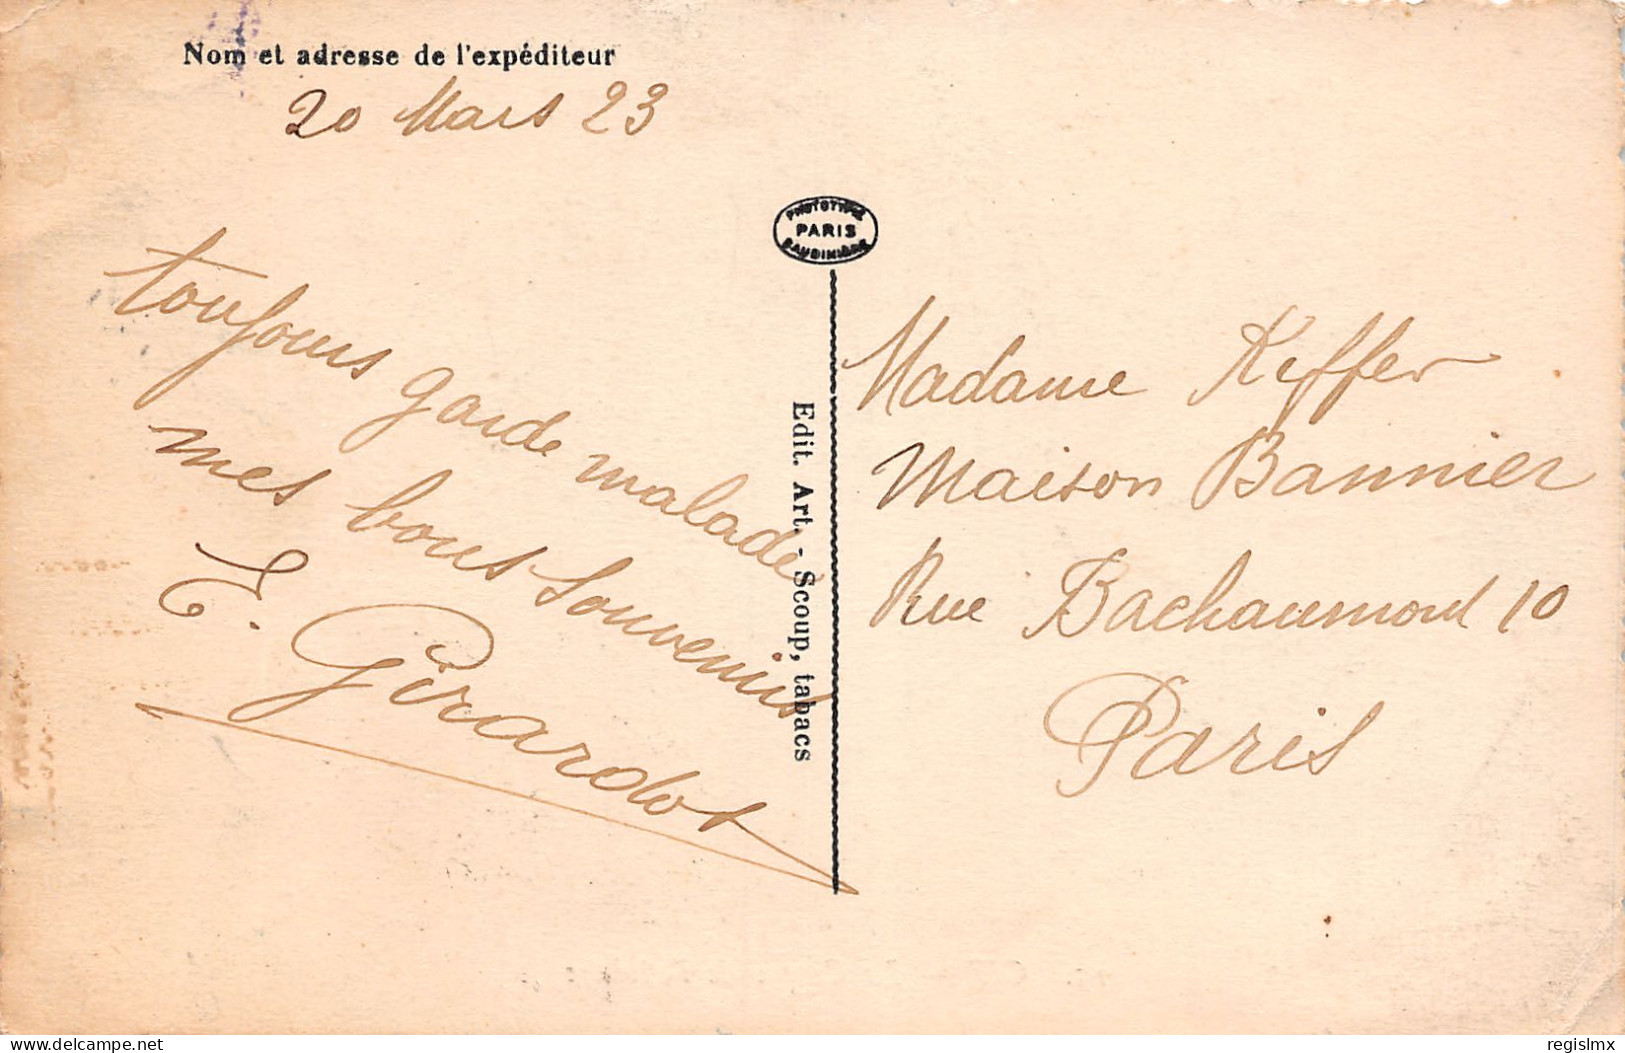 Nom et adresse de l'expéditeur
20 Mars 23
toujours garde malade
mes bons souvenirs
E. Girardot
PHOTOTYPIE
PARIS
BAUDINIÈRE
Edit. Art. - Scoup, tabacs
Madame Keffer
Maison Bannier
Rue Bachaumont 10
Paris
delcampe.net
regislmx